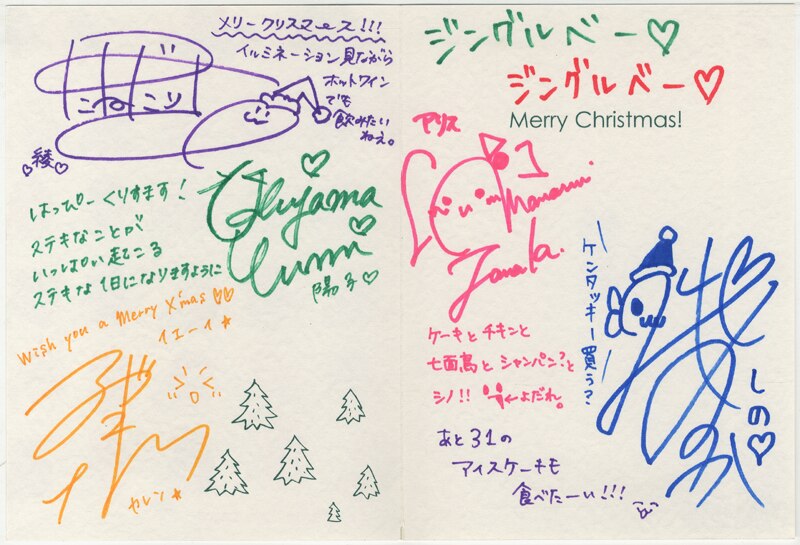 メリークリスマース!!!
イルミネーション見ながら
ホットワイン
でも
飲みたい
ねぇ。
綾
はっぴーくりすます!
ステキなことが
いっぱい起こる
ステキな1日になりますように
Yumi
陽子♡
Wish you a Merry X'mas ♡♡
イエーイ★
カレン★
ジングルベー♡
ジングルベー♡
Merry Christmas!
アリス
Manami
Tanaka.
ケーキとチキンと
七面鳥とシャンパン?と
シノ!! ←よだれ。
あと31の
アイスケーキも
食べたーい!!!
ケンタッキー買う?
しの♡